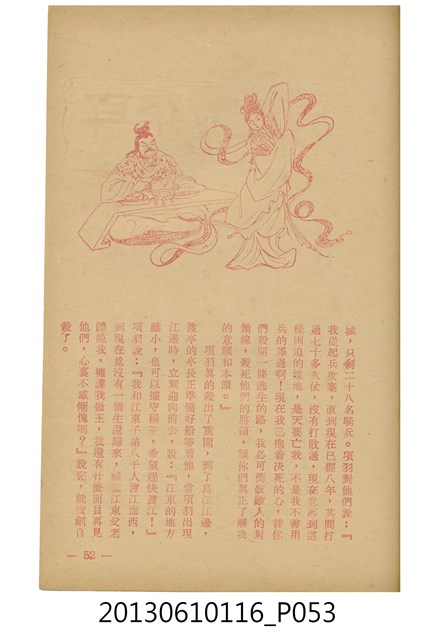 城，只剩二十八名騎兵。項羽對他們說：『
我從起兵攻秦，直到現在已經八年，其間打
過七十多次仗，沒有打敗過，現在竟落到這
樣困迫的境地，是天要亡我，不是我不善用
兵的罪過啊！現在我已抱着決死的心，替你
們殺開一條逃生的路，我必可衝破敵人的封
鎖線，殺死他們的將領，讓你們真正了解我
的意願和本領。』
項羽果的殺出了重圍，到了烏江江邊，
渡亭的亭長正準備好船等着他，當項羽出現
江邊時，立刻迎向前去，說：『江東的地方
雖小，也可以據守稱王，希望趕快渡江！』
項羽說：『我和江東子弟八千人渡江而西，
到現在竟沒有一個生還歸來，縱使江東父老
體諒我，擁護我做王，我還有什麼面目再見
他們，心裏不感慚愧嗎？』說完，就拔劍自
殺了。
— 52 —
20130610116_P053